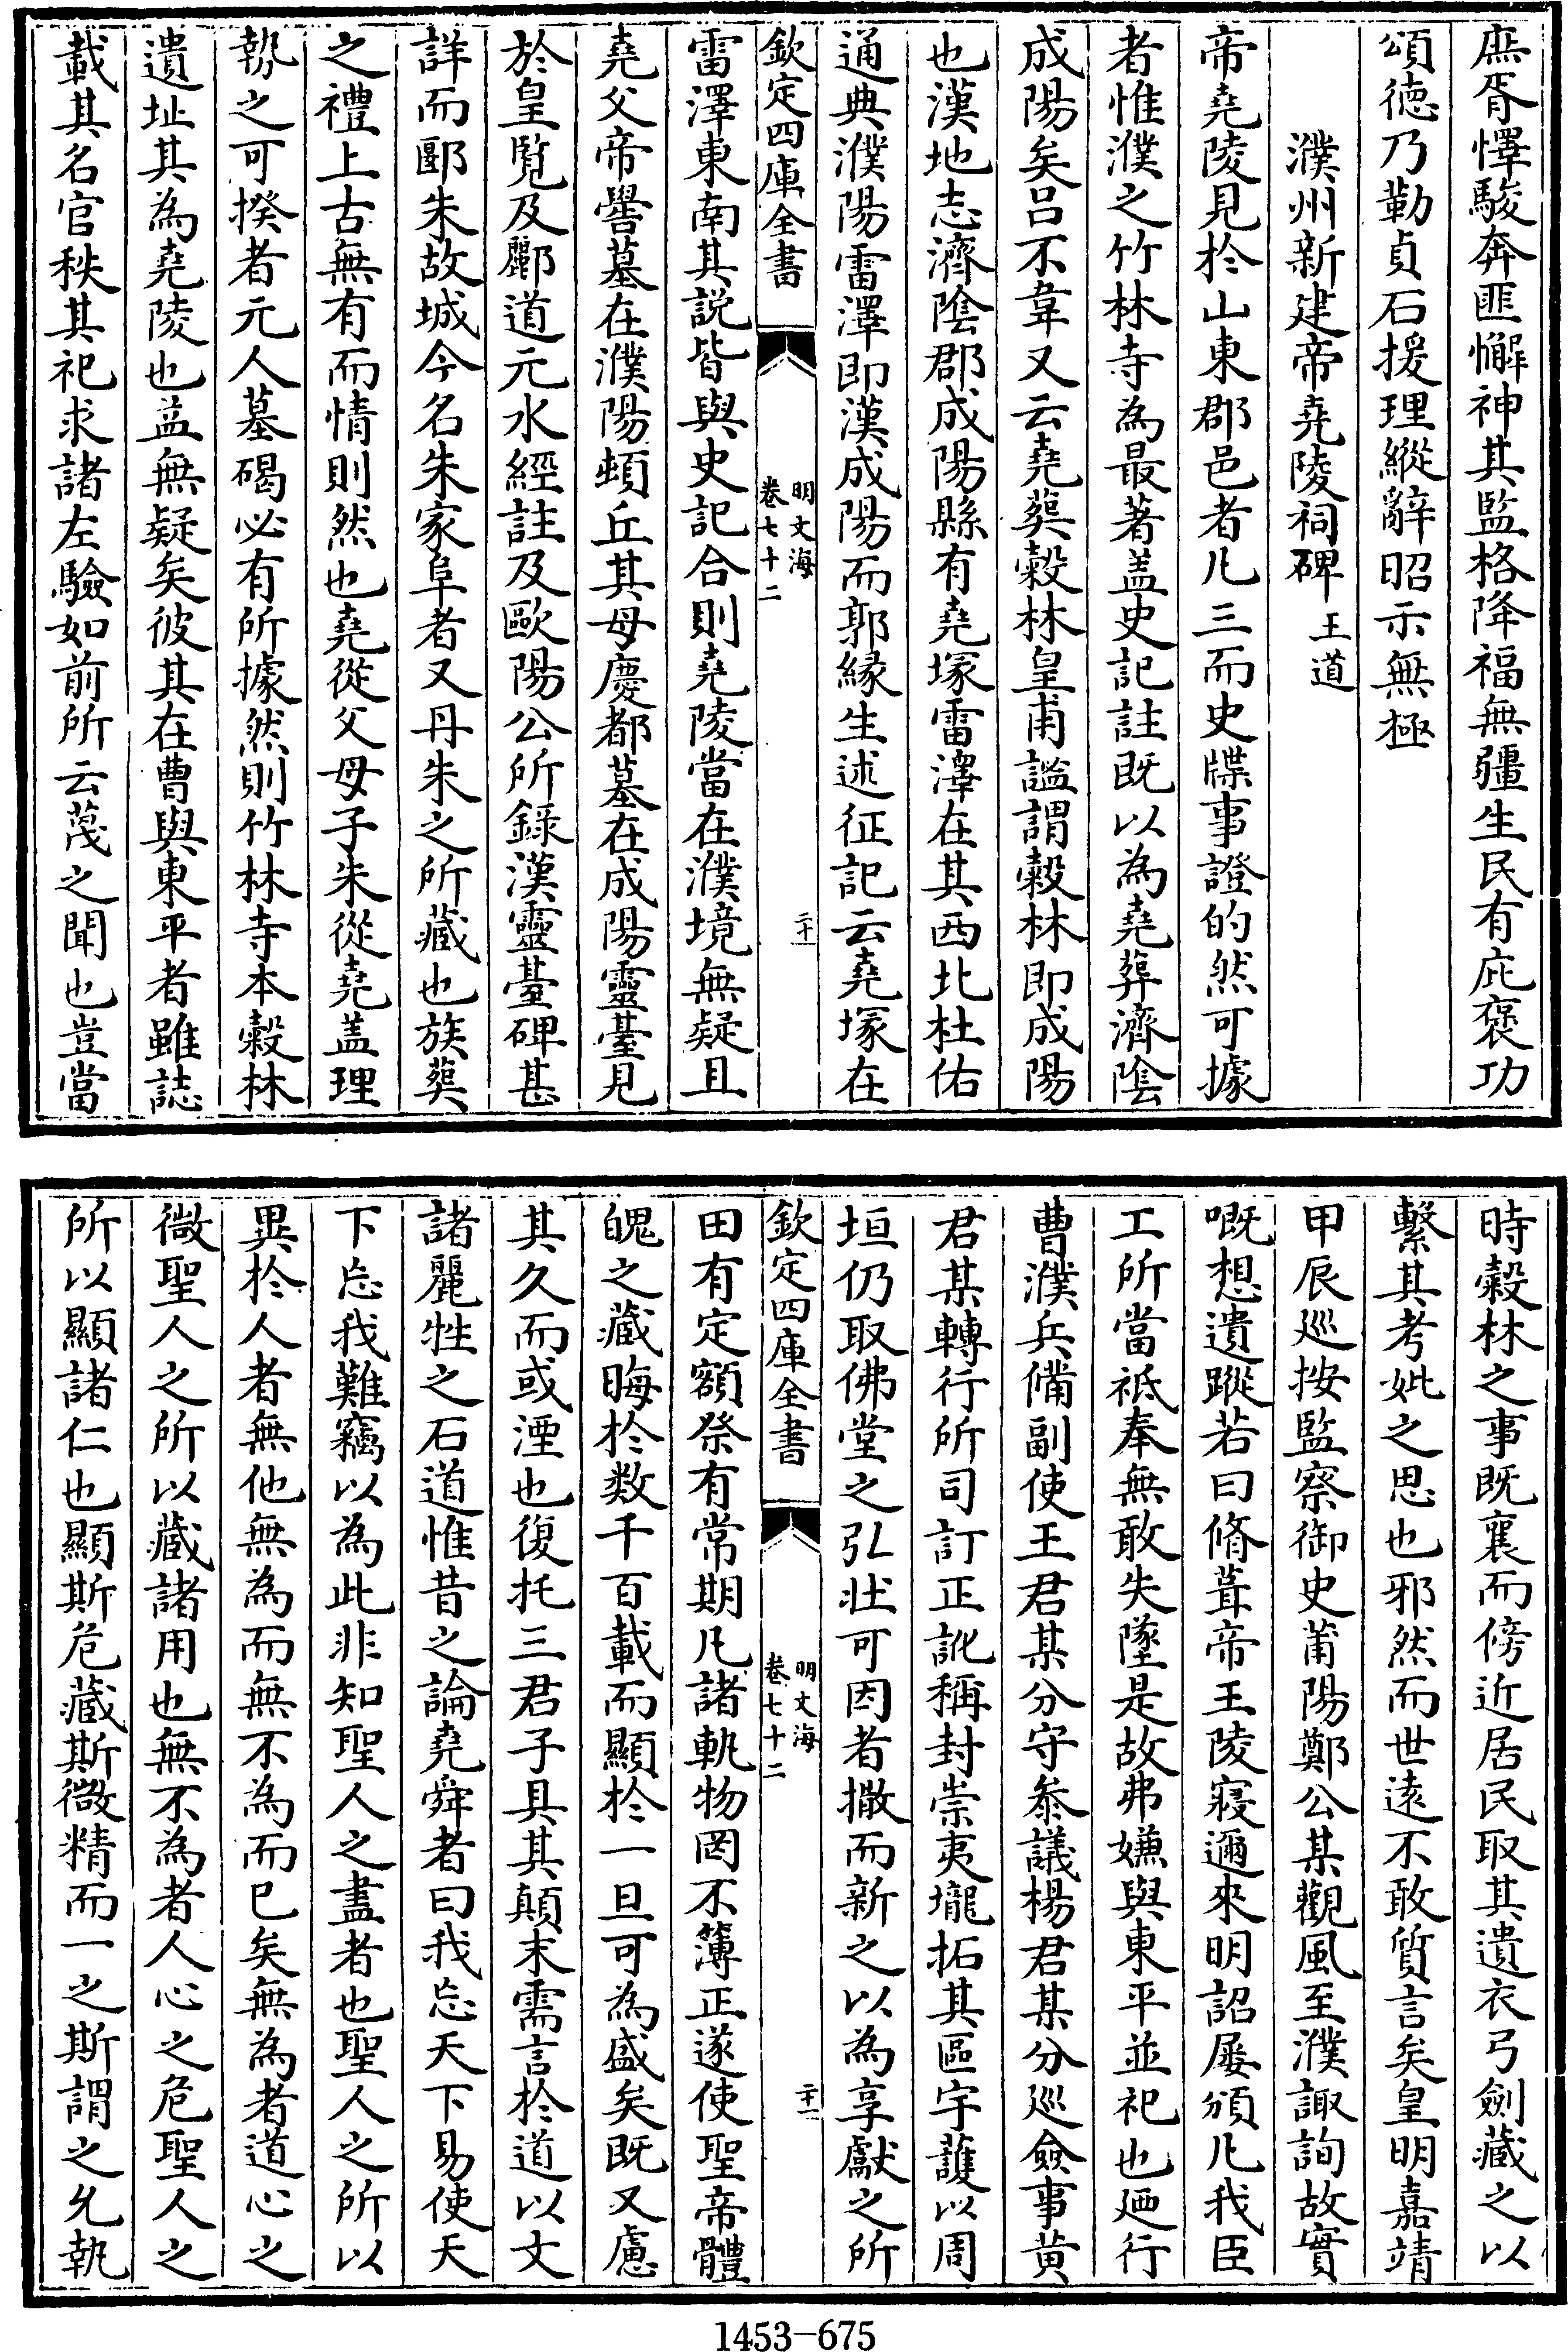 庶胥懌駿奔匪懈神其監格降福無疆生民有庇褒功
頌徳乃勒貞石援理縱辭昭示無極
濮州新建帝堯陵祠碑 王道
帝堯陵見於山東郡邑者凡三而史牒事證的然可據
者惟濮之竹林寺為最著盖史記註既以為堯葬濟陰
成陽矣吕不韋又云堯葬榖林皇甫謐謂榖林即成陽
也漢地志濟陰郡成陽縣有堯塚雷澤在其西北杜佑
通典濮陽雷澤即漢成陽而郭緣生述征記云堯塚在
欽定四庫全書
明文海
卷七十二
二十
雷澤東南其説皆與史記合則堯陵當在濮境無疑且
堯父帝嚳墓在濮陽頓丘其母慶都墓在成陽靈臺見
於皇覽及酈道元水經註及歐陽公所錄漢靈臺碑甚
詳而郾朱故城今名朱家阜者又丹朱之所藏也族葬
之禮上古無有而情則然也堯從父母子朱從堯盖理
勢之可揆者元人墓碣必有所據然則竹林寺本榖林
遺址其為堯陵也益無疑矣彼其在曹與東平者雖誌
載其名官秩其祀求諸左驗如前所云蔑之聞也豈當
時榖林之事既襄而傍近居民取其遺衣弓劍藏之以
繫其考妣之思也邪然而世逺不敢質言矣皇明嘉靖
甲辰巡按監察御史莆陽鄭公某觀風至濮諏詢故實
嘅想遺蹤若曰脩葺帝王陵寢邇來明詔屢頒凡我臣
工所當祗奉無敢失墜是故弗嫌與東平並祀也廼行
曹濮兵備副使王君某分守叅議楊君某分巡僉事黄
君某轉行所司訂正訛稱封崇夷壠拓其區宇護以周
垣仍取佛堂之弘壯可因者撒而新之以為享獻之所
欽定四庫全書
明文海
卷七十二
二十一
田有定額祭有常期凡諸軌物罔不簿正遂使聖帝體
魄之藏晦於數千百載而顯於一旦可為盛矣既又慮
其久而或湮也復托三君子具其顛末需言於道以文
諸麗牲之石道惟昔之論堯舜者曰我忘天下易使天
下忘我難竊以為此非知聖人之盡者也聖人之所以
異於人者無他無為而無不為而已矣無為者道心之
微聖人之所以藏諸用也無不為者人心之危聖人之
所以顯諸仁也顯斯危藏斯微精而一之斯謂之允執
1453-675